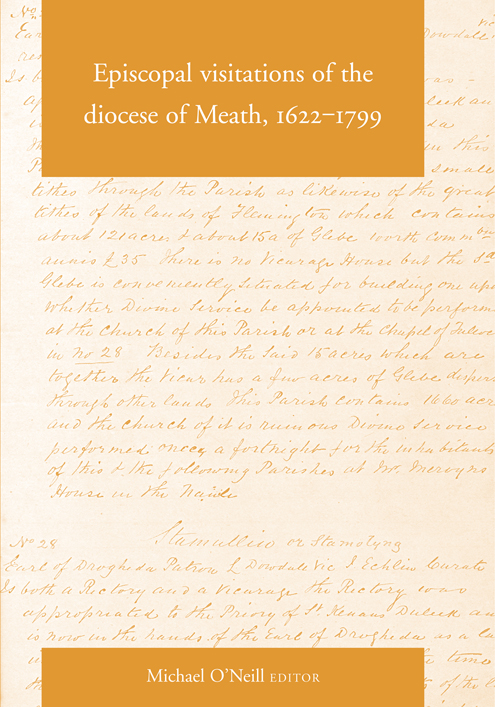 Episcopal visitations of the
diocese of Meath, 1622–1799
No
Dowdall
tithes through the Parish as likewise of the great
tithes of the lands of Flemington which contains
about 121 acres & about 15a of Glebe worth comm
annis £35 There is no Vicarage House but the sd
Glebe is conveniently situated for building one upon
whether Divine Service be appointed to be perform
at the Church of this Parish or at the Chapel of
in No 28 Besides the Said 15 acres which are
together the Vicar has a few acres of Glebe dispers
through other lands This Parish contains 1660 acr
and the Church of it is ruinous Divine Service
performed once a fortnight for the inhabitants
of this & the following Parishes at Mr. Mervyns
House in the Naule
Stamullin or Stamolyng
No 28
Earl of Drogheda Patron L Dowdall Vic J Echlin Curate
Is both a Rectory and a Vicarage the Rectory was
appropriated to the Priory of St. Kenans Duleek an
is now in the hands of the Earl of Drogheda as a La
the time
of the
Michael O'Neill EDITOR